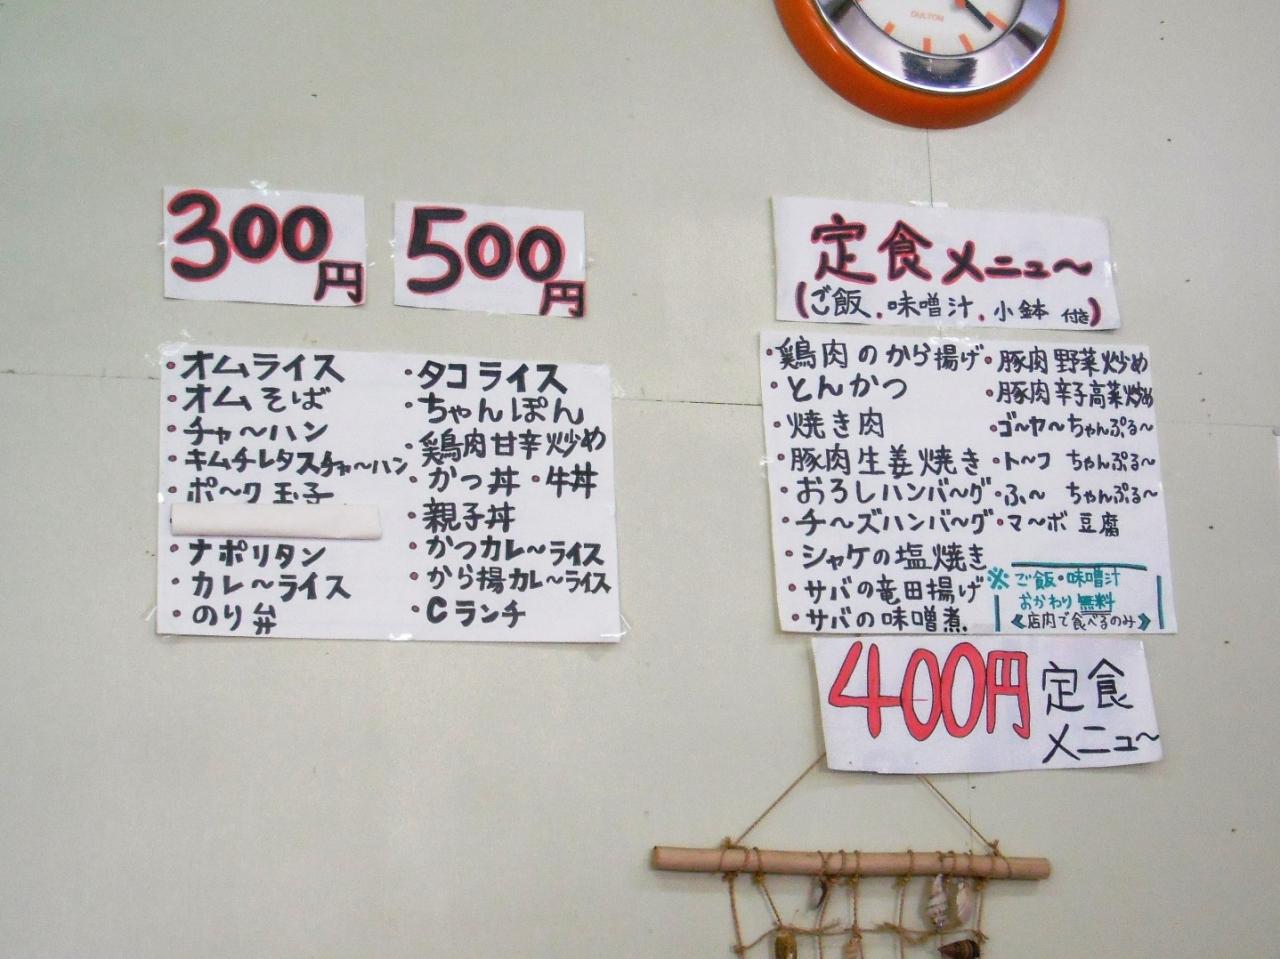 DULTON
300円
500円
・オムライス
・オムそば
・チャ～ハン
・キムチレタスチャ～ハン
・ポ～ク玉子
・ナポリタン
・カレ～ライス
・のり弁
・タコライス
・ちゃんぽん
・鶏肉甘辛炒め
・かつ丼・牛丼
・親子丼
・かつカレ～ライス
・から揚カレ～ライス
・Cランチ
定食メニュ～
(ご飯、味噌汁、小鉢付き)
・鶏肉のから揚げ
・とんかつ
・焼き肉
・豚肉生姜焼き
・おろしハンバ～グ
・チ～ズハンバ～グ
・シャケの塩焼き
・サバの竜田揚げ
・サバの味噌煮
・豚肉野菜炒め
・豚肉辛子高菜炒め
・ゴ～ヤ～ちゃんぷる～
・ト～フ ちゃんぷる～
・ふ～ ちゃんぷる～
・マ～ボ豆腐
※ご飯・味噌汁
おかわり無料
《店内で食べるのみ》
400円定食
メニュ～